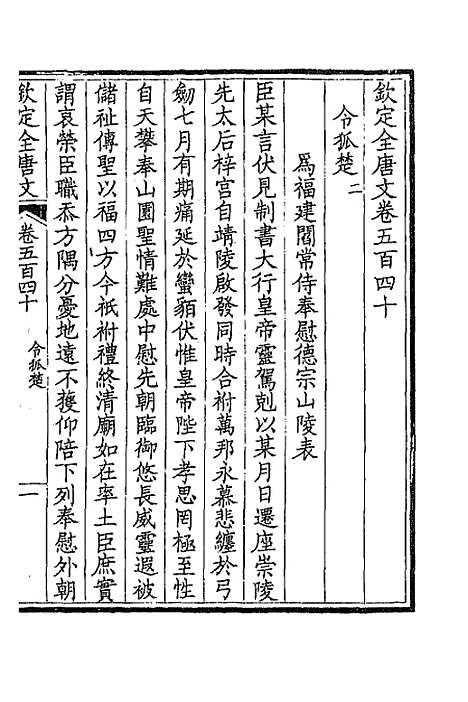 欽定全唐文卷五百四十
令狐楚二
為福建閻常侍奉慰德宗山陵表
臣某言伏見制書大行皇帝靈駕剋以某月日遷座崇陵
先太后梓宫自靖陵啟發同時合祔萬邦永慕悲纏於弓
劒七月有期痛延於蠻貊伏惟皇帝陛下孝思罔極至性
自天攀奉山園聖情難處中慰先朝臨御悠長威靈遐被
儲祉傳聖以福四方今祇祔禮終清廟如在率土臣庶實
謂哀榮臣職忝方隅分憂地遠不獲仰陪下列奉慰外朝
欽定全唐文
卷五百四十
令狐楚
一